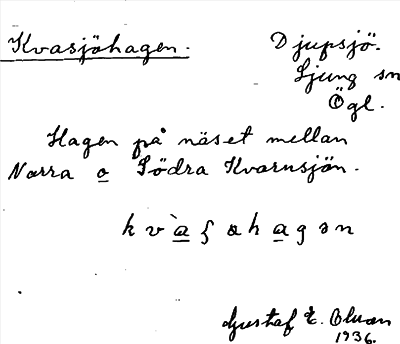 Kvasjöhagen.
Djupsjö.
Ljung sn
Ögl.
Hagen på näset mellan
Norra o Södra Kvarnsjön.
Gustaf E.
1936.